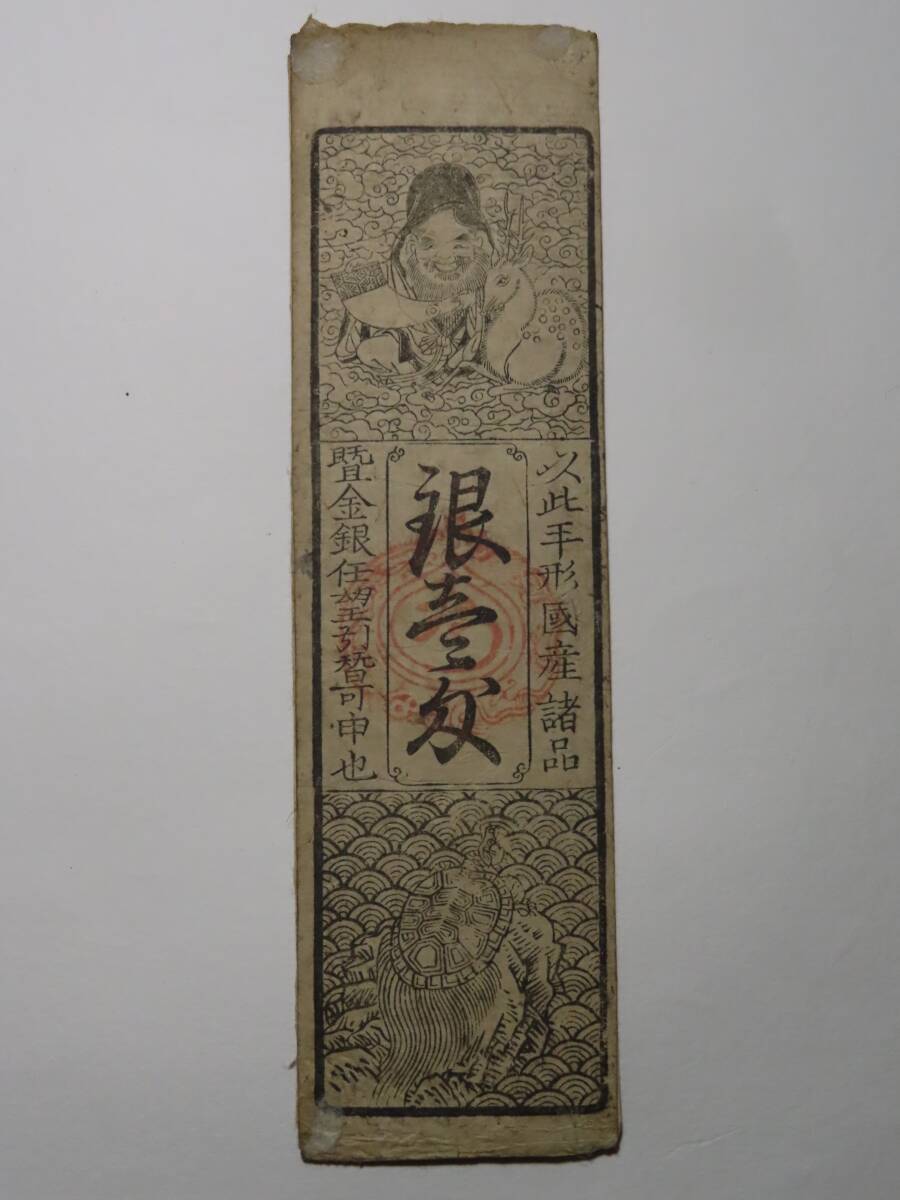 以此手形國産諸品
銀壹匁
曁金銀任望引替可申也